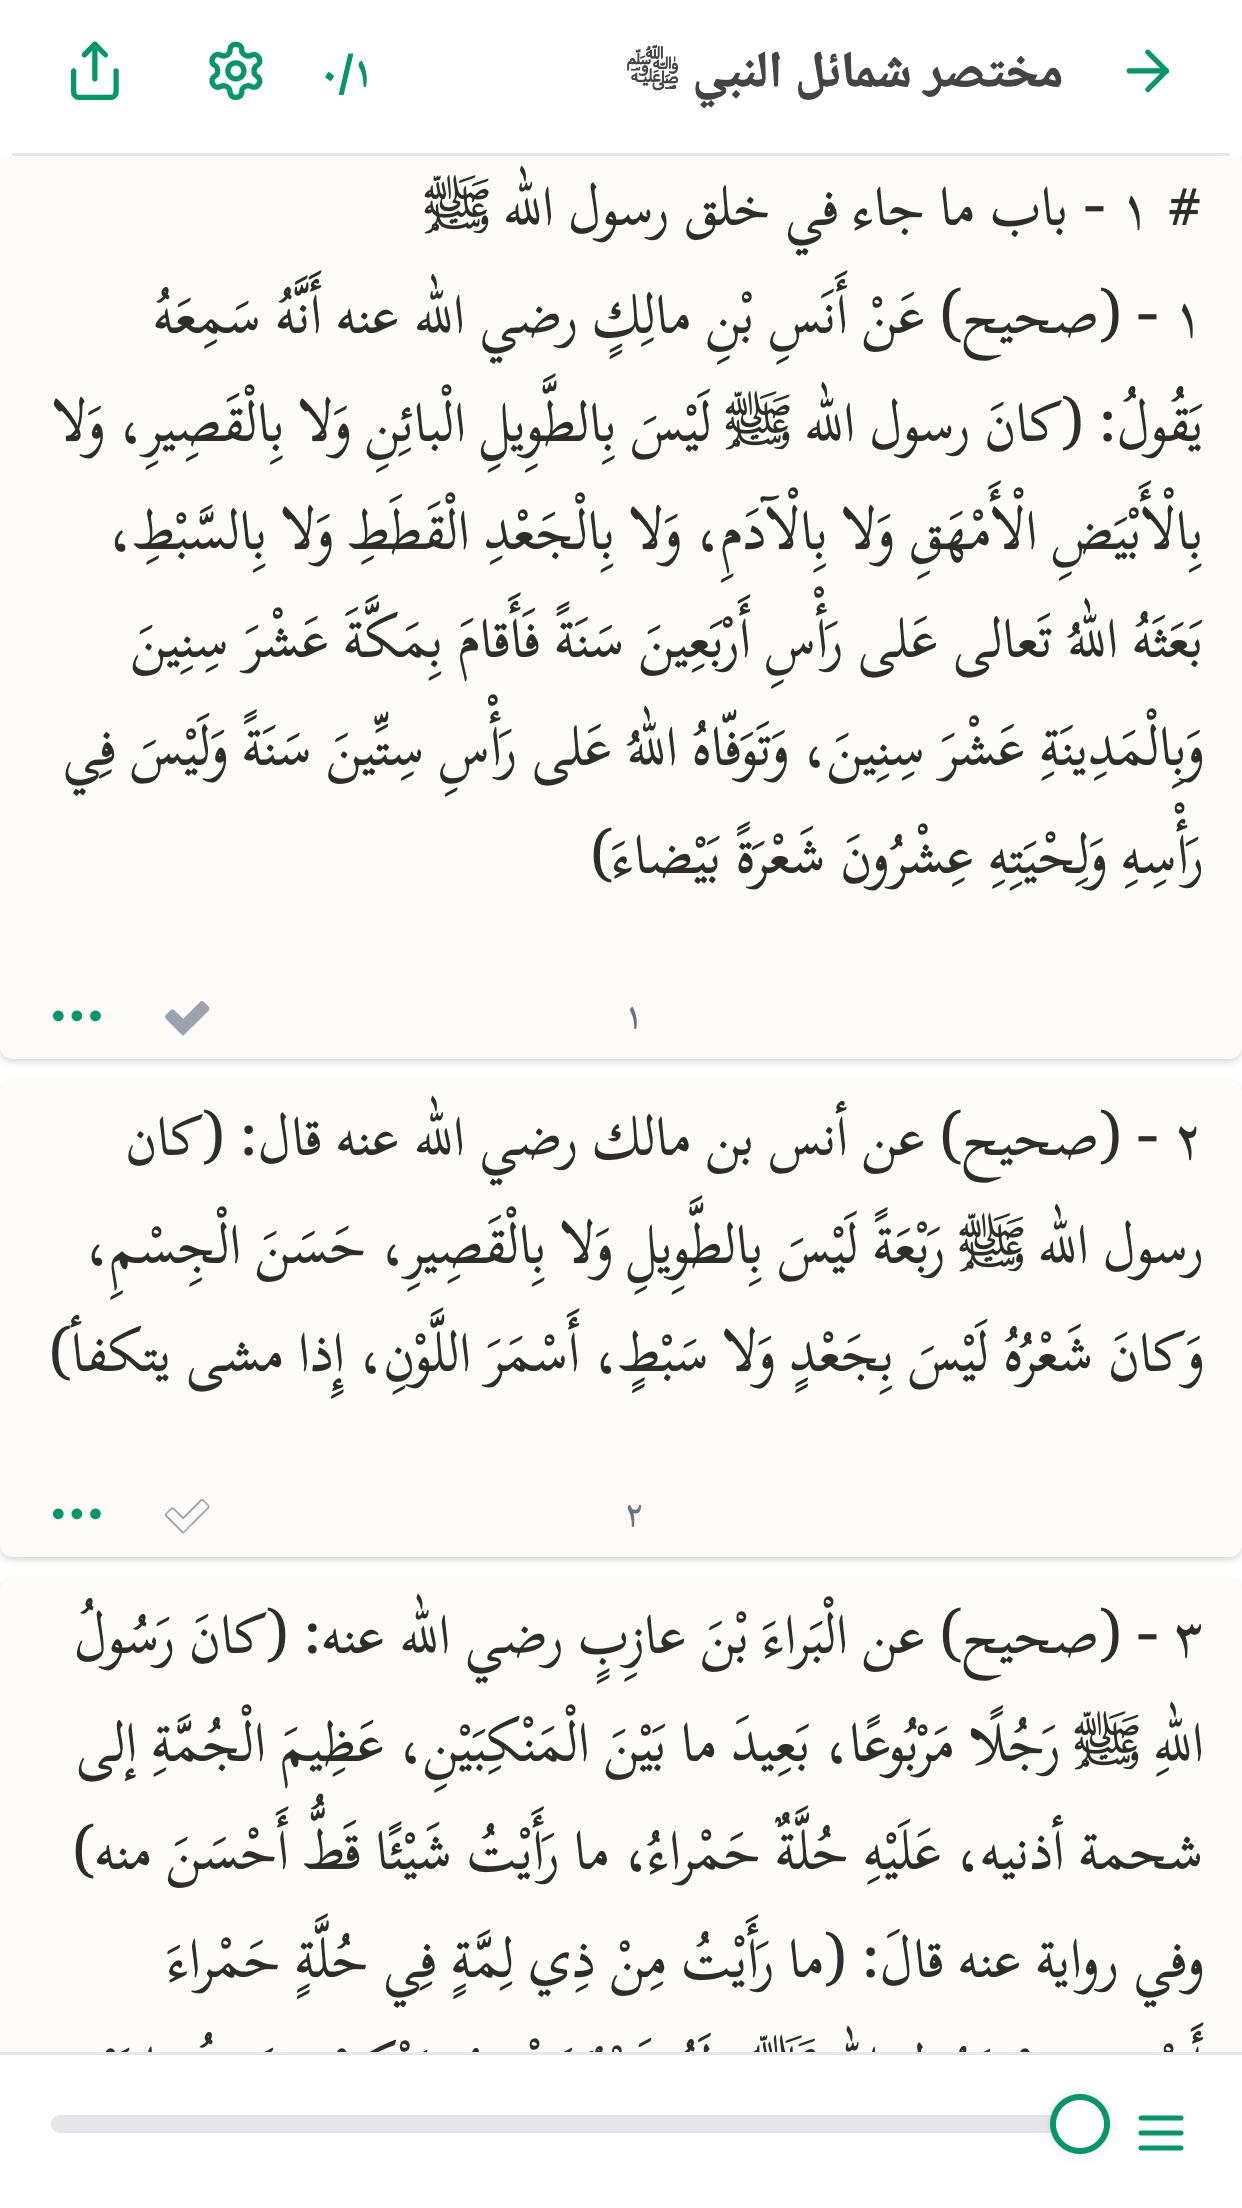 مختصر شمائل النبي ﷺ
٠/١
# ١ - باب ما جاء في خلق رسول الله ﷺ
١ - (صحيح) عَنْ أَنَسِ بْنِ مالِكٍ رضي الله عنه أَنَّهُ سَمِعَهُ
يَقُولُ: (كانَ رسول الله ﷺ لَيْسَ بِالطَّوِيلِ الْبائِنِ وَلا بِالْقَصِيرِ، وَلا
بِالْأَبْيَضِ الْأَمْهَقِ وَلا بِالْآدَمِ، وَلا بِالْجَعْدِ الْقَطَطِ وَلا بِالسَّبْطِ،
بَعَثَهُ اللهُ تَعالى عَلى رَأْسِ أَرْبَعِينَ سَنَةً فَأَقامَ بِمَكَّةَ عَشْرَ سِنِينَ
وَبِالْمَدِينَةِ عَشْرَ سِنِينَ، وَتَوَفّاهُ اللهُ عَلى رَأْسِ سِتِّينَ سَنَةً وَلَيْسَ فِي
رَأْسِهِ وَلِحْيَتِهِ عِشْرُونَ شَعْرَةً بَيْضاءَ)
١
٢ - (صحيح) عن أنس بن مالك رضي الله عنه قال: (كان
رسول الله ﷺ رَبْعَةً لَيْسَ بِالطَّوِيلِ وَلا بِالْقَصِيرِ، حَسَنَ الْجِسْمِ،
وَكانَ شَعْرُهُ لَيْسَ بِجَعْدٍ وَلا سَبْطٍ، أَسْمَرَ اللَّوْنِ، إِذا مشى يتكفأ)
٢
٣ - (صحيح) عن الْبَراءَ بْنَ عازِبٍ رضي الله عنه: (كانَ رَسُولُ
اللهِ ﷺ رَجُلًا مَرْبُوعًا، بَعِيدَ ما بَيْنَ الْمَنْكِبَيْنِ، عَظِيمَ الْجُمَّةِ إلى
شحمة أذنيه، عَلَيْهِ حُلَّةٌ حَمْراءُ، ما رَأَيْتُ شَيْئًا قَطُّ أَحْسَنَ منه)
وفي رواية عنه قالَ: (ما رَأَيْتُ مِنْ ذِي لِمَّةٍ فِي حُلَّةٍ حَمْراءَ